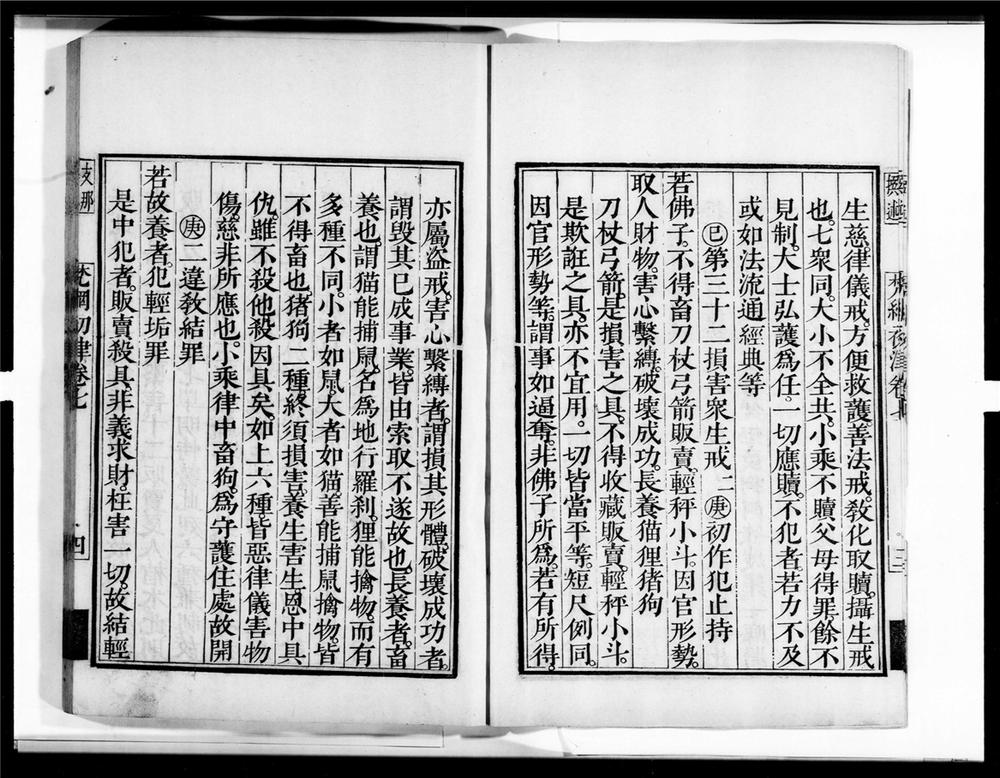 生慈。律儀戒。方便救護。善法戒。敎化取贖。攝生戒
也。七衆同。大小不全共。小乘不贖父母得罪。餘不
見制。大士弘護爲任。一切應贖。不犯者。若力不及
或如法流通經典等
巳第三十二損害衆生戒二庚初作犯止持
若佛子。不得畜刀杖弓箭販賣。輕秤小斗。因官形勢。
取人財物。害心繫縛。破壞成功。長養猫狸猪狗
刀杖弓箭。是損害之具。不得收藏販賣。輕秤小斗。
是欺誑之具。亦不宜用。一切皆當平等。短尺例同。
因官形勢等。謂事如逼奪。非佛子所爲。若有所得。
亦屬盜戒。害心繫縛者。謂損其形體。破壞成功者。
謂毀其巳成事業。皆由索取不遂故也。長養者。畜
養也。謂猫能捕鼠。名爲地行羅刹。狸能擒物。而有
多種不同。小者如鼠。大者如猫。善能捕鼠擒物。皆
不得畜也。猪狗二種。終須損害。養生害生。恩中具
仇。雖不殺他殺。因具矣。如上六種。皆惡律儀。害物
傷慈。非所應也。小乘律中畜狗。爲守護住處故開
庚二違敎結罪
若故養者。犯輕垢罪
是中犯者。販賣殺具。非義求財。枉害一切。故結輕
支那
卷七
四